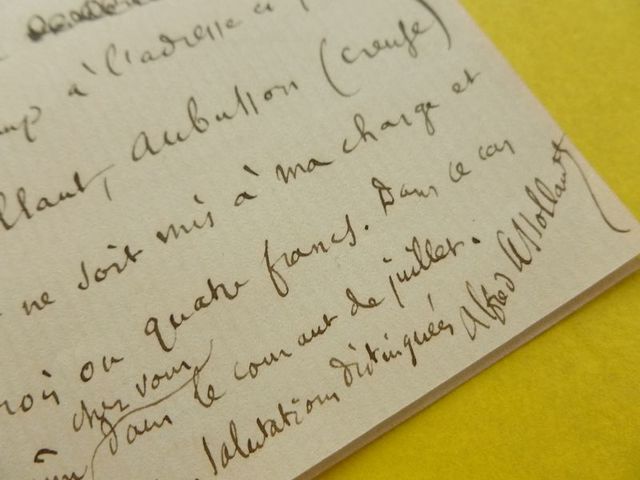 à l'adresse
Aubusson (Creuse)
ne soit mis à ma charge et
ou quatre francs. Dans ce cas
chez vous
dans le courant de juillet.
Salutations distinguées Alfred Assollant